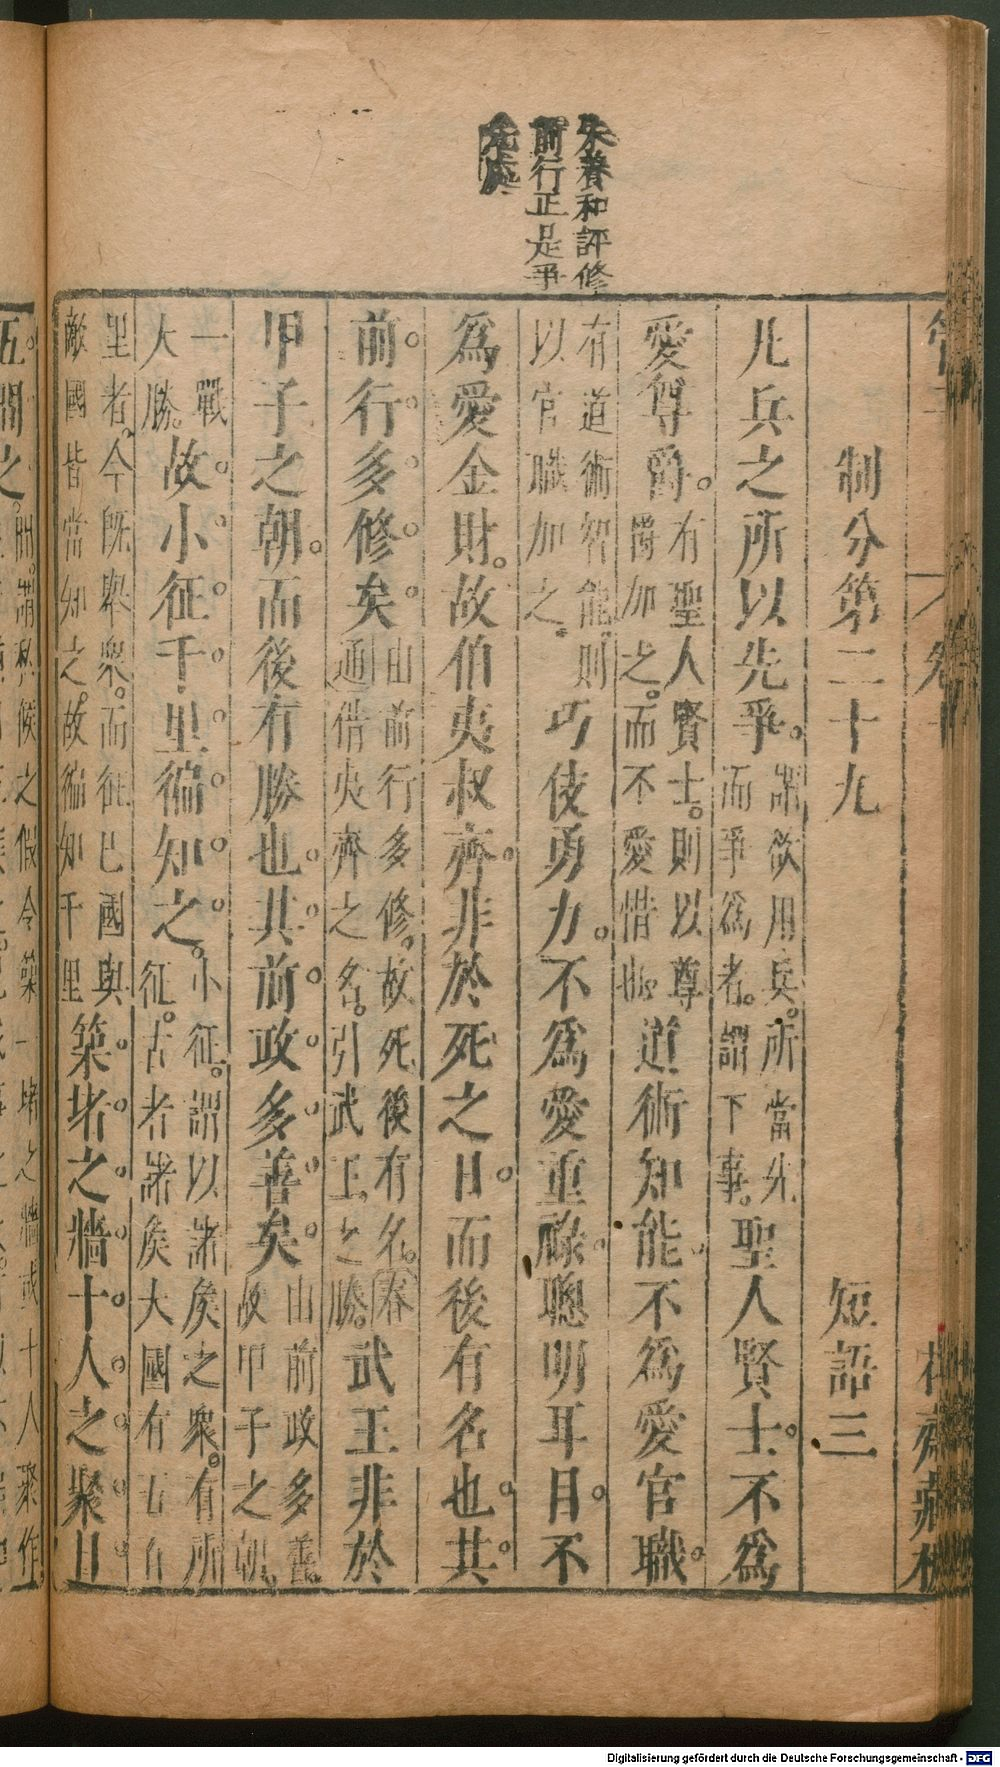 朱養和評修
前行正是爭
先處
制分第二十九
短語三
凡兵之所以先爭謂欲用兵所當先而爭為者謂下事聖人賢士不為
愛尊爵有聖人賢士則以尊爵加之而不愛惜也道術知能不為愛官職
有道術智能則以官職加之巧伎勇力不為愛重祿聰明耳目不
為愛金財故伯夷叔齊非於死之日而後有名也其
前行多修矣由前行多修故死後有名通借夷齊之名引武王之勝春武王非於
甲子之朝而後有勝也其前政多善矣由前政多善故甲子之朝
一戰大勝故小征千里徧知之小征謂以諸侯之眾有所征古者諸侯大國有五百
里者今既舉眾而征已國與敵國皆當知之故徧知千里築堵之牆十人之聚日
五閒之
候之假令築一堵之牆或十人聚作
Digitalisierung gefördert durch die Deutsche Forschungsgemeinschaft - DFG